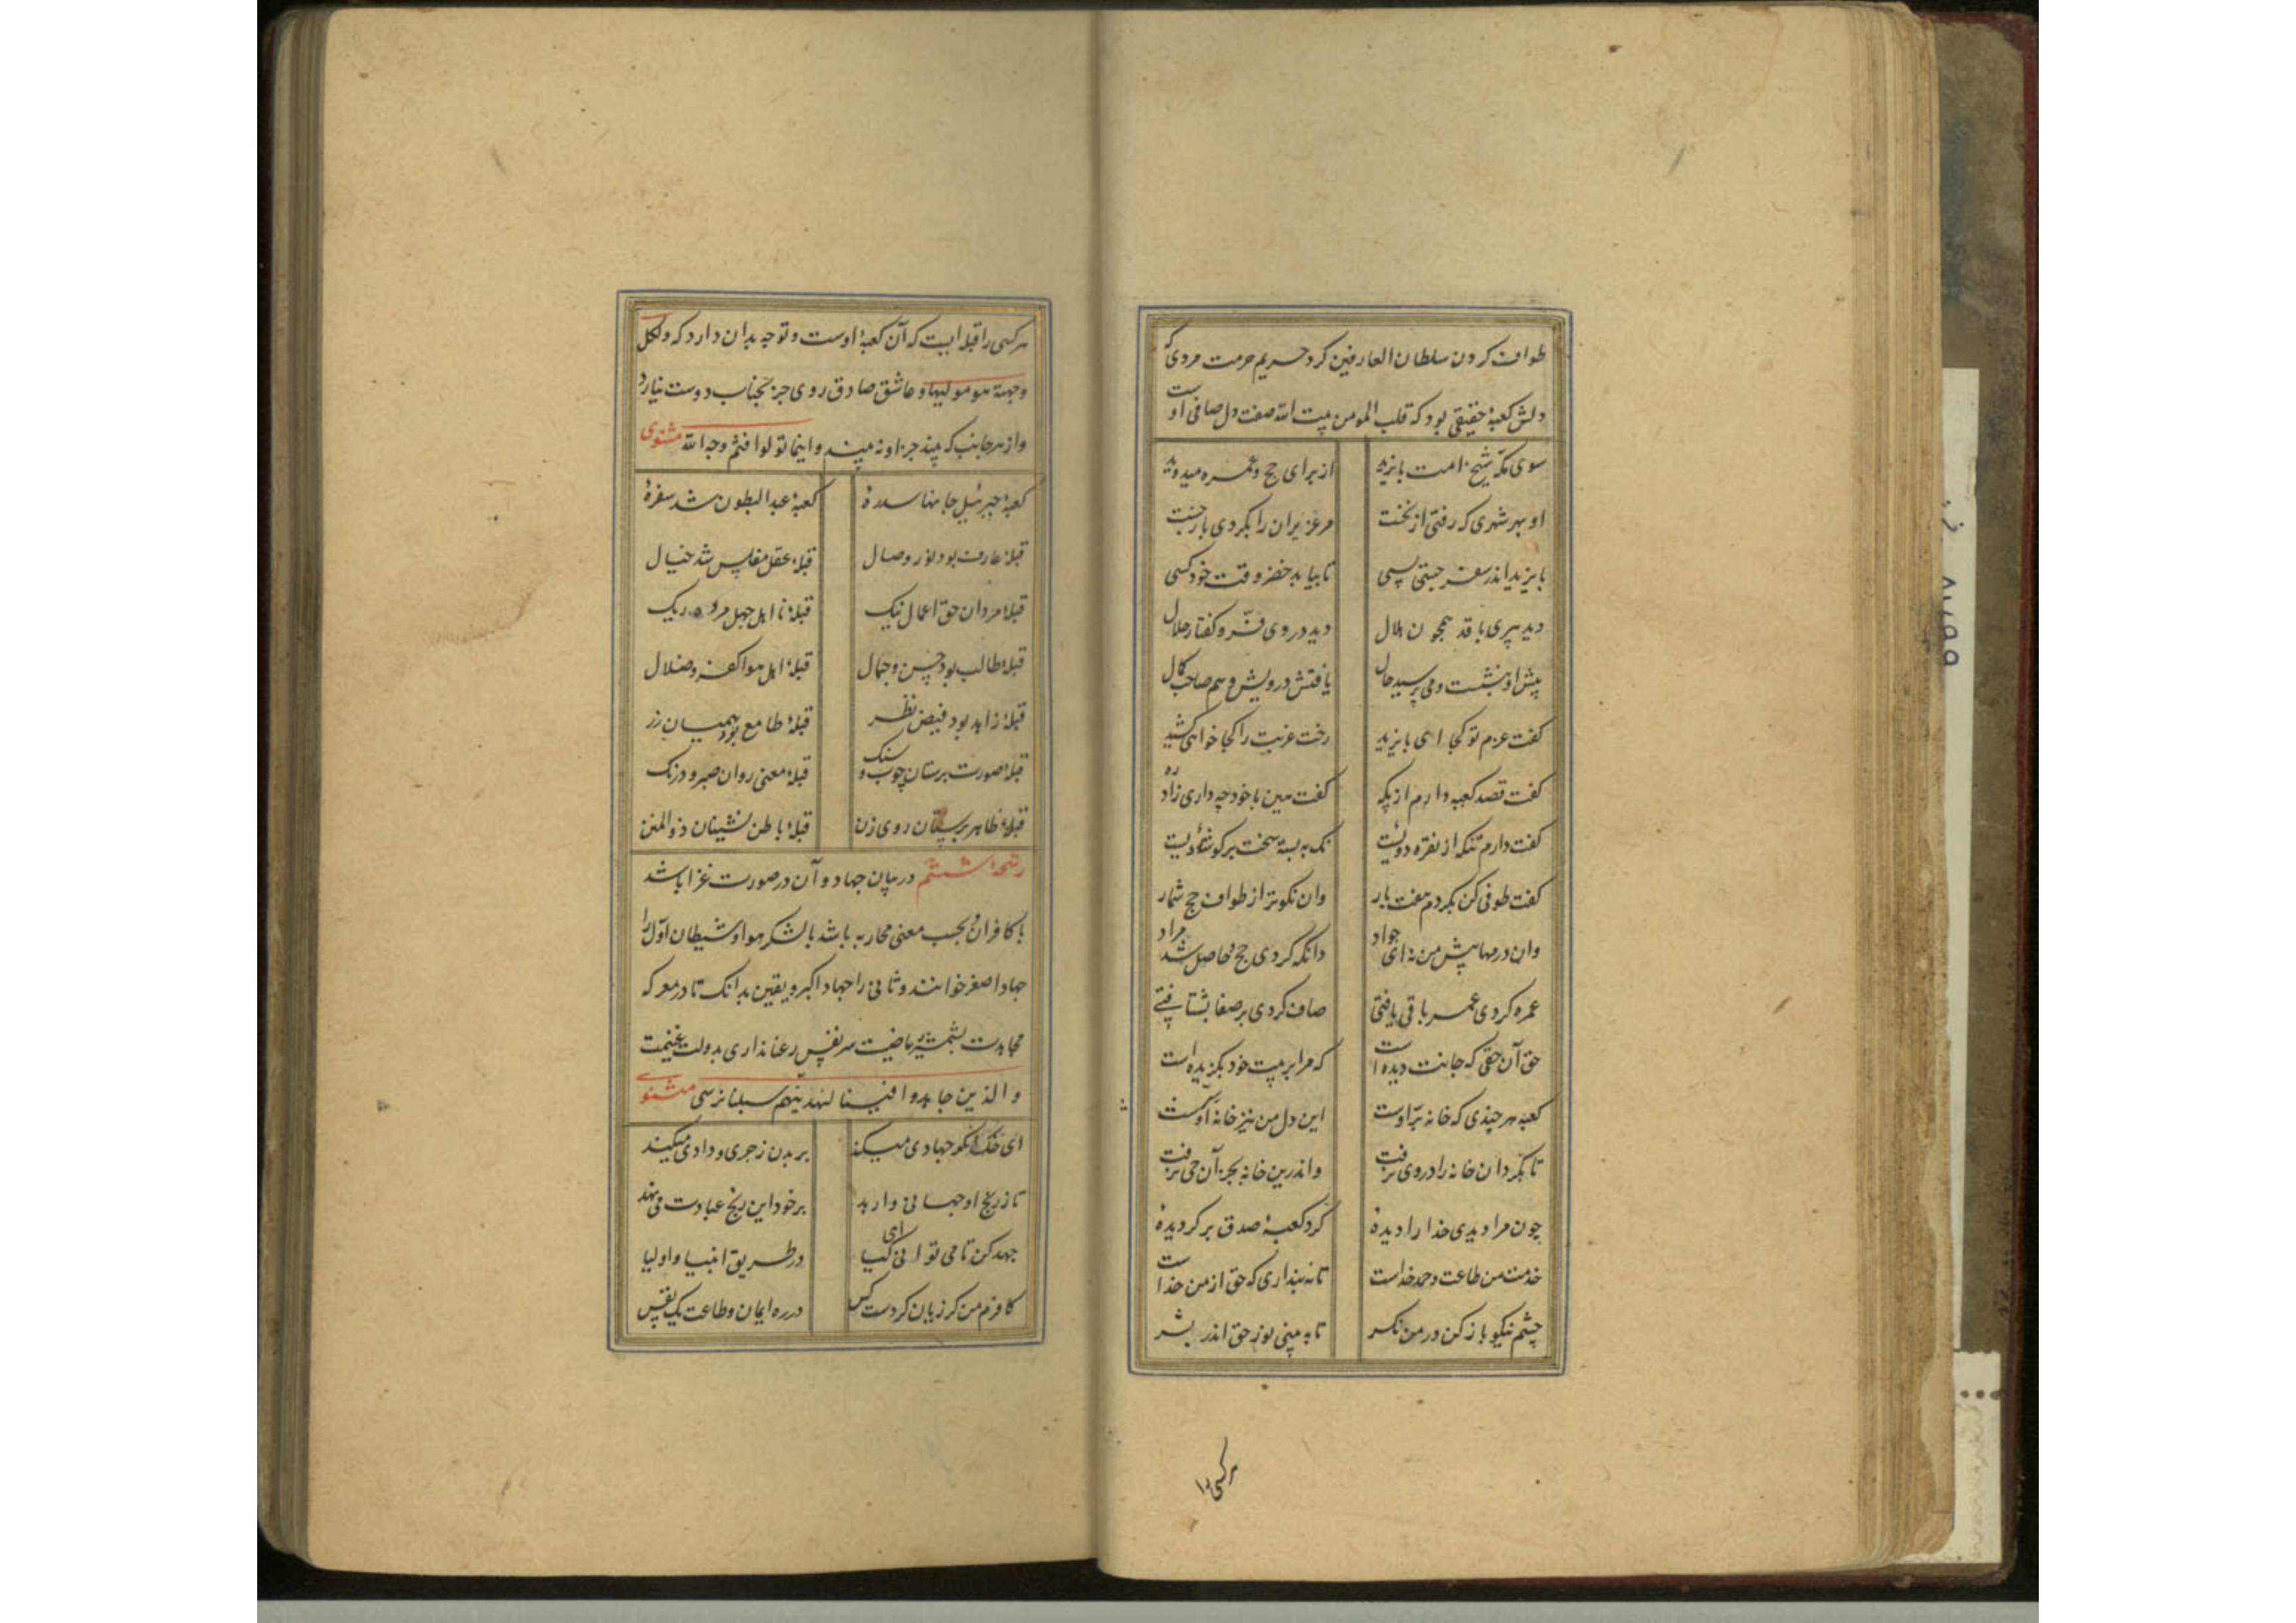 طواف کردن سلطان العارفین کرد حریم حرمت مردی که
دلش کعبهٔ حقیقی بود که قلب المومن بیت الله صفت دل صافی اوست
سوی مکه شیخ امت بایزید از برای حج و عمره میدوید
او بهر شهری که رفتی از نخست مر عزیزان را بکردی بازجست
بایزید اندر سفر جستی بسی تا بیابد خضر وقت خود کسی
دید پیری با قد همچون هلال دید در وی فر و گفتار حلال
پیش او بنشست و می پرسید حال یافتش درویش و هم صاحب کمال
گفت عزم تو کجا ای بایزید رخت غربت را کجا خواهی کشید
گفت قصد کعبه دارم از پگه گفت هین با خود چه داری زاد ره
گفت دارم تنگه از نقره دویست نک به بسته سخت بر گوشهٔ ردیست
گفت طوفی کن بگردم هفت بار وان نکوتر از طواف حج شمار
وان درمها پیش من نه ای جواد دانکه کردی حج و حاصل شد مراد
عمره کردی عمر باقی یافتی صاف کردی بر صفا بشتافتی
حق آن حقی که جانت دیده است که مرا بر بیت خود بگزیده است
کعبه هر چندی که خانه برّ اوست این دل من نیز خانهٔ اوست
تا بکرد آن خانه را در وی نرفت واندرین خانه بجز آن حی نرفت
چون مرا دیدی خدا را دیدهٔ گرد کعبهٔ صدق بر گردیدهٔ
خدمت من طاعت و حمد خداست تا نه پنداری که حق از من جداست
چشم نیکو باز کن در من نگر تا به بینی نور حق اندر بشر
هر کسی را
هر کسی را قبله ایست که آن کعبهٔ اوست و توجه بدان دارد که ولکل
وجهة هو مولیها و عاشق صادق روی جز بجناب دوست نیارد
و از هر جانب که بیند جز او نه بیند و اینما تولوا فثم وجه الله مثنوی
کعبهٔ جبرئیل جانها سدرهٔ کعبهٔ عبدالبطون شد سفرهٔ
قبلهٔ عارف بود نور وصال قبلهٔ عقل مفلس شد خیال
قبلهٔ مردان حق اعمال نیک قبلهٔ نا اهل جهل مرده ریک
قبلهٔ طالب بود حسن و جمال قبلهٔ اهل هوا کفر و ضلال
قبلهٔ زاهد بود فیض نظر قبلهٔ طامع بود همیان زر
قبلهٔ صورت پرستان چوب و سنک قبلهٔ معنی روان صبر و درنک
قبلهٔ ظاهر پرستان روی زن قبلهٔ باطن نشینان ذوالمنن
رشحهٔ ششم در بیان جهاد و آن در صورت غزا باشد
با کافران و بحسب معنی محاربه باشد با لشکر هوا و شیطان اول را
جهاد اصغر خوانند و ثانی را جهاد اکبر و یقین بدانک تا در معرکه
مجاهدت بشمشیر ریاضت سر نفس رعنا نداری بدولت غنیمت
و الذین جاهدوا فینا لنهدینهم سبلنا نرسی مثنوی
ای خنک آنکو جهادی میکند بر بدن زجری و دادی میکند
تا ز رنج او جهانی وارهد بر خود این رنج عبادت می نهد
جهد کن تا می توانی ای کیا در طریق انبیا و اولیا
کافرم من گر زیان کردست کس در ره ایمان و طاعت یک نفس